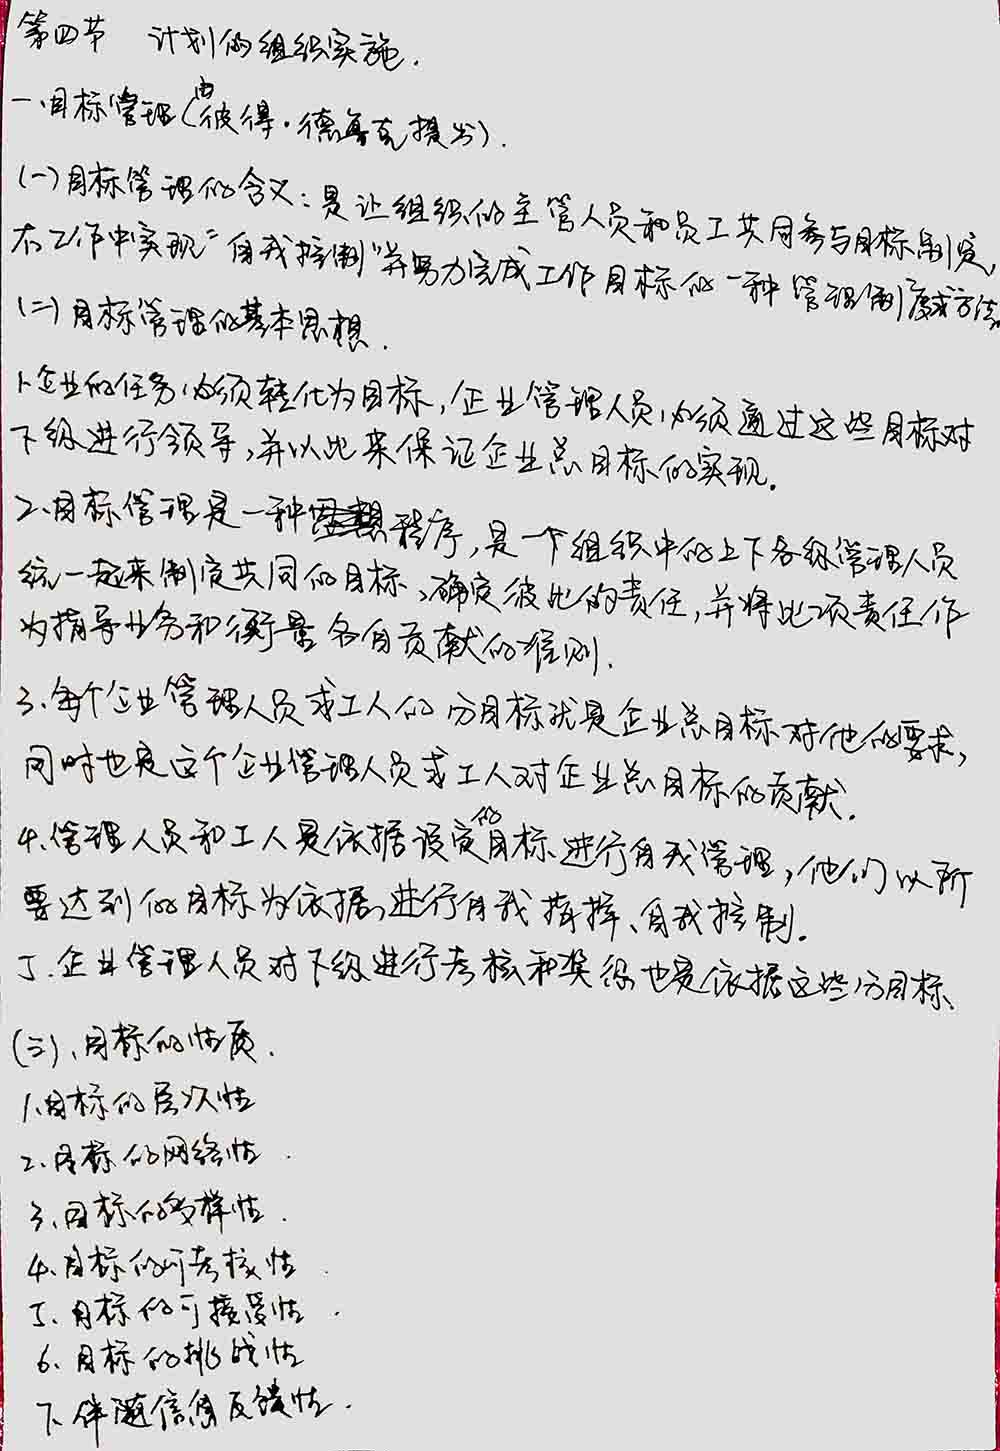 第四节 计划的组织实施.
一、目标管理(由彼得·德鲁克提出).
(一)目标管理的含义:是让组织的主管人员和员工共同参与目标制定,
在工作中实现“自我控制”并努力完成工作目标的一种管理制度或方法.
(二)目标管理的基本思想.
1.企业的任务必须转化为目标,企业管理人员必须通过这些目标对
下级进行领导,并以此来保证企业总目标的实现.
2.目标管理是一种程序,是一个组织中的上下各级管理人员
统一起来制定共同的目标、确定彼此的责任,并将此项责任作
为指导业务和衡量各自贡献的准则.
3.每个企业管理人员或工人的分目标就是企业总目标对他的要求,
同时也是这个企业管理人员或工人对企业总目标的贡献.
4.管理人员和工人是依据设定的目标进行自我管理,他们以所
要达到的目标为依据,进行自我指挥、自我控制.
5.企业管理人员对下级进行考核和奖惩也是依据这些分目标.
(三)、目标的性质.
1.目标的层次性
2.目标的网络性.
3.目标的多样性.
4.目标的可考核性.
5.目标的可接受性.
6.目标的挑战性
7.伴随信息反馈性.